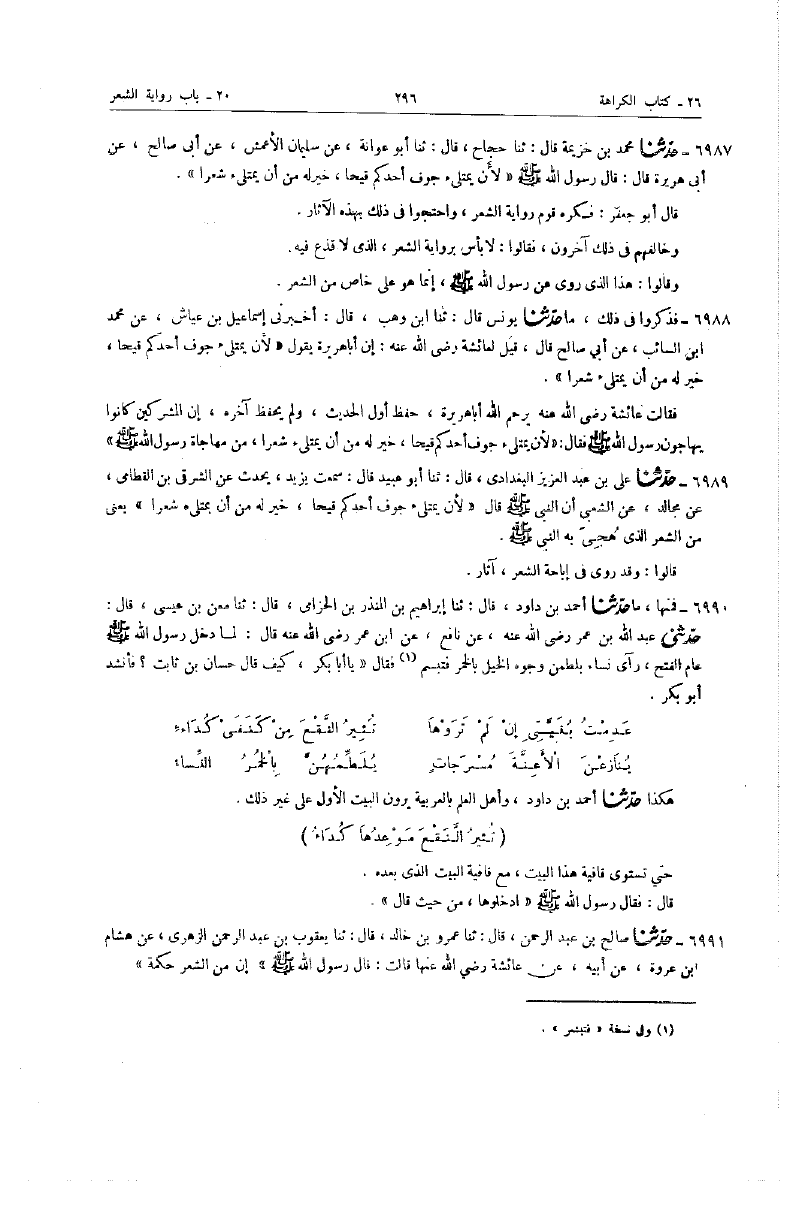 ٢٦ ـ كتاب الكراهة ٢٩٦ ٢٠ ـ باب رواية الشعر
٦٩٨٧ ـ حدثنا محمد بن خزيمة قال : ثنا حجاج ، قال : ثنا أبو عوانة ، عن سليمان الأعمش ، عن أبى صالح ، عن
أبى هريرة قال : قال رسول الله ﷺ « لأن يمتلىء جوف أحدكم قيحا ، خيرله من أن يمتلىء شعرا » .
قال أبو جعفر : فكره قوم رواية الشعر ، واحتجوا فى ذلك بهذه الآثار .
وخالفهم فى ذلك آخرون ، فقالوا : لا بأس برواية الشعر ، الذى لا قذع فيه .
وقالوا : هذا الذى روى عن رسول الله ﷺ ، إنما هو على خاص من الشعر .
٦٩٨٨ ـ فذكروا فى ذلك ، ما حدثنا يونس قال : ثنا ابن وهب ، قال : أخبرنى إسماعيل بن عياش ، عن محمد
ابن السائب ، عن أبي صالح قال ، قيل لعائشة رضى الله عنه : إن أبا هريرة يقول « لأن يمتلىء جوف أحدكم قيحا ،
خير له من أن يمتلىء شعرا » .
فقالت عائشة رضى الله عنه يرحم الله أباهريرة ، حفظ أول الحديث ، ولم يحفظ آخره ، إن المشركين كانوا
يهاجون رسول الله ﷺ فقال : «لأن يمتلىء جوف أحدكم قيحا ، خير له من أن يمتلىء شعرا ، من مهاجاة رسول الله ﷺ »
٦٩٨٩ ـ حدثنا على بن عبد العزيز البغدادى ، قال : ثنا أبو عبيد قال : سمعت يزيد ، يحدث عن الشرقى بن القطامى ،
عن مجالد ، عن الشعبي أن النبي ﷺ قال « لأن يمتلىء جوف أحدكم قيحا ، خير له من أن يمتلىء شعرا » يعنى
من الشعر الذى هُجِىَ به النبى ﷺ .
قالوا : وقد روى فى إباحة الشعر ، آثار .
٦٩٩٠ ـ فمنها ، ما حدثنا أحمد بن داود ، قال : ثنا إبراهيم بن المنذر بن الحزامى ، قال : ثنا معن بن عيسى ، قال :
حدثنى عبد الله بن عمر رضى الله عنه ، عن نافع ، عن ابن عمر رضى الله عنه قال : لما دخل رسول الله ﷺ
عام الفتح ، رأى نساء يلطمن وجوه الخيل بالخمر فتبسم (١) فقال « يا أبا بكر ، كيف قال حسان بن ثابت ؟ فأنشد
أبو بكر .
عَدِمْتُ بُنَيَّتِى إِنْ لَمْ تَرَوْهَا تُثِيرُ النَّقْعَ مِنْ كَتَفَىْ كُدَاءِ
يُنَازِعْنَ الْأَعِنَّةَ مُسْرَجَاتٍ يُلَطِّمُهُنَّ بِالْخُمُرُ النِّسَاءُ
هكذا حدثنا أحمد بن داود ، وأهل العلم بالعربية يرون البيت الأول على غير ذلك .
( تُثِيرُ النَّقْعَ مَوْعِدُهَا كُدَاءُ )
حتى تستوى قافية هذا البيت ، مع قافية البيت الذى بعده .
قال : فقال رسول الله ﷺ « ادخلوها ، من حيث قال » .
٦٩٩١ ـ حدثنا صالح بن عبد الرحمن ، قال : ثنا عمرو بن خالد ، قال : ثنا يعقوب بن عبد الرحمن الزهرى ، عن هشام
ابن عروة ، عن أبيه ، عن عائشة رضي الله عنها قالت : قال رسول الله ﷺ « إن من الشعر حكمة »
(١) وفى نسخة « فتبشر » .